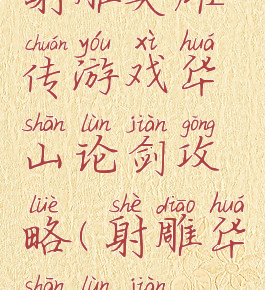 射雕英雄
chuán yóu xì huá
传游戏华
shān lùn jiàn gōng
山论剑攻
lüè shè diāo huá
略(射雕华
shān lùn jiàn